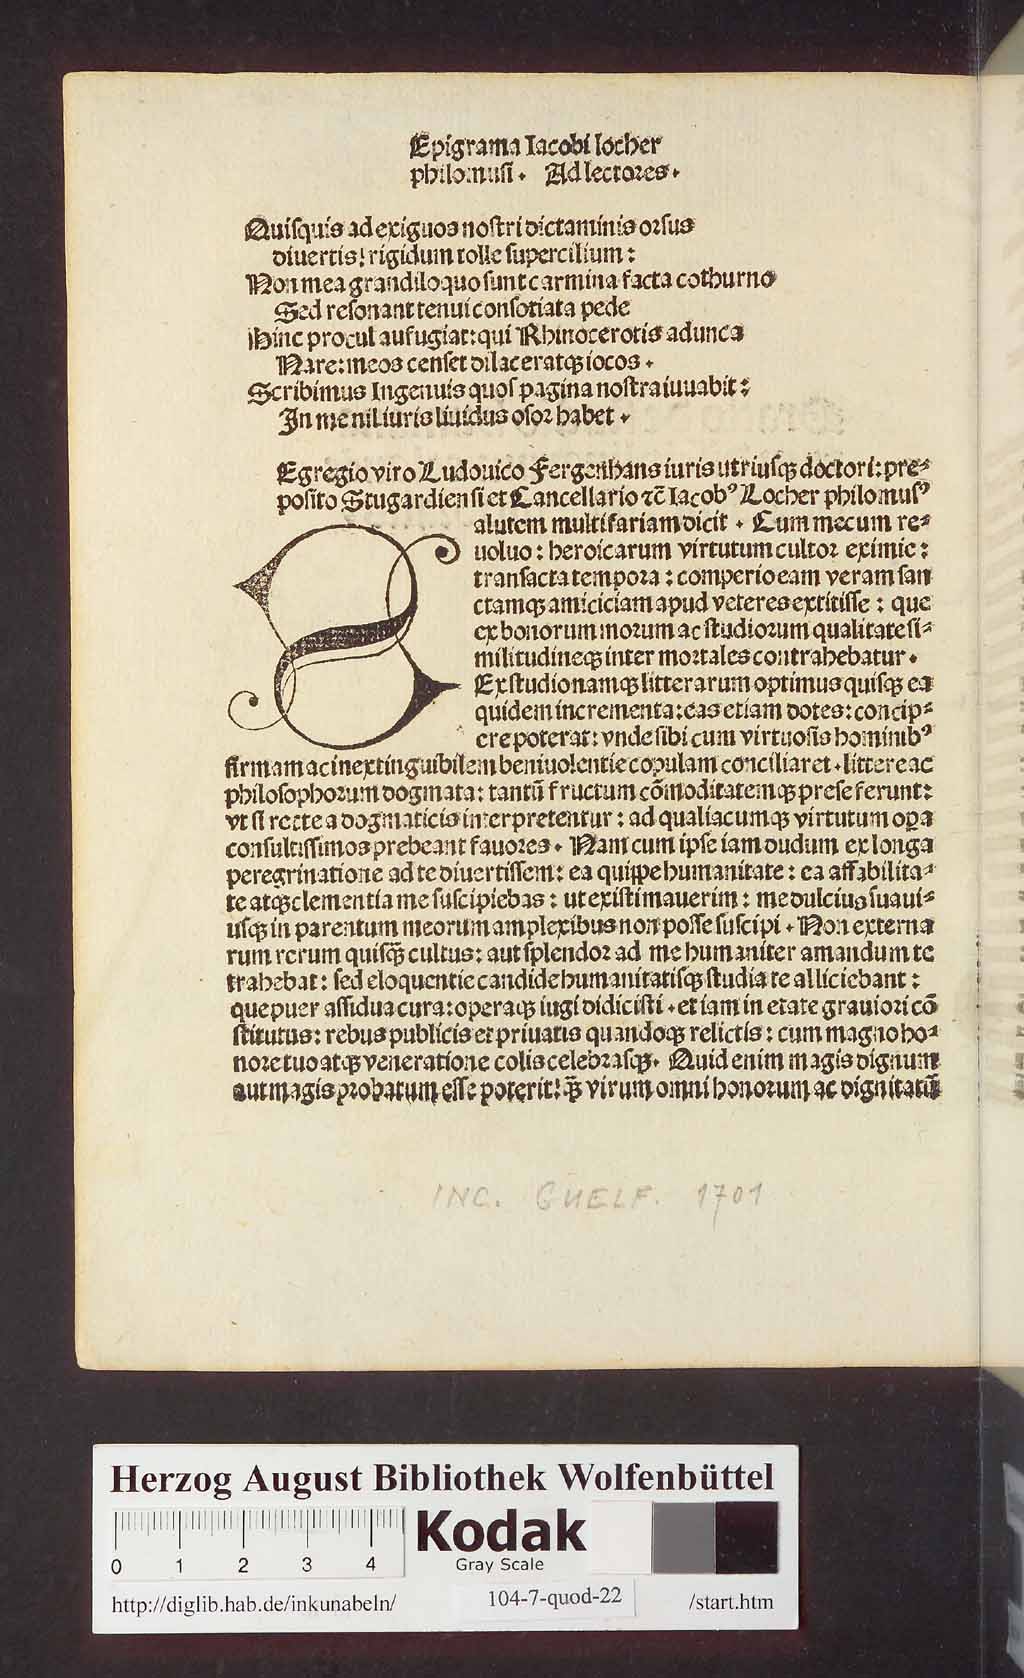 Epigrama Iacobi locher
philomusi. Ad lectores.
Quiſquis ad exiguos noſtri dictaminis orſus
diuertis! rigidum tolle ſupercilium:
Non mea grandiloquo ſunt carmina facta cothurno
Sed reſonant tenui conſotiata pede
Hinc procul aufugiat: qui Rhinocerotis adunca
Nare: meos cenſet dilaceratqꝫ iocos.
Scribimus Ingenuis quoſ pagina noſtra iuuabit:
In me nil iuris liuidus oſor habet.
Egregio viro Ludouico Fergenhans iuris utriuſqꝫ doctori: pre⸗
poſito Stugardienſi et Cancellario ⁊c̄ Iacobꝰ Locher philomuſꝰ
S alutem multifariam dicit. Cum mecum re⸗
uoluo: heroicarum virtutum cultor eximie:
tranſacta tempora: comperio eam veram ſan
ctamqꝫ amiciciam apud veteres extitiſſe: que
ex bonorum morum ac ſtudiorum qualitate ſi⸗
militudineqꝫ inter mortales contrahebatur.
Ex ſtudio namqꝫ litterarum optimus quiſqꝫ ea
quidem incrementa: eas etiam dotes: concip⸗
ere poterat: vnde ſibi cum virtuoſis hominibꝰ
firmam ac inextinguibilem beniuolentie copulam conciliaret. littere ac
philoſophorum dogmata: tantū fructum cōmoditatemqꝫ preſe ferunt:
vt ſi recte a dogmaticis interpretentur: ad qualiacumqꝫ virtutum oꝑa
conſultiſſimos prebeant fauores. Nam cum ipſe iam dudum ex longa
peregrinatione ad te diuertiſſem: ea quippe humanitate: ea affabilita⸗
te atqꝫ clementia me ſuſcipiebas: ut exiſtimauerim: me dulcius ſuaui⸗
uſqꝫ in parentum meorum amplexibus non poſſe ſuſcipi. Non externa
rum rerum quiſqꝫ̄ cultus: aut ſplendor ad me humaniter amandum te
trahebat: ſed eloquentie candide humanitatiſqꝫ ſtudia te alliciebant:
que puer aſſidua cura: operaqꝫ iugi didiciſti. et iam in etate grauiori cō
ſtitutus: rebus publicis et priuatis quandoqꝫ relictis: cum magno ho⸗
nore tuo atqꝫ veneratione colis celebraſqꝫ. Quid enim magis dignum
aut magis probatum eſſe poterit! qꝫ̄ virum omni honorum ac dignitatū
INC. GUELF. 1701
Herzog August Bibliothek Wolfenbüttel
0 1 2 3 4
Kodak
Gray Scale
http://diglib.hab.de/inkunabeln/ 104-7-quod-22 /start.htm